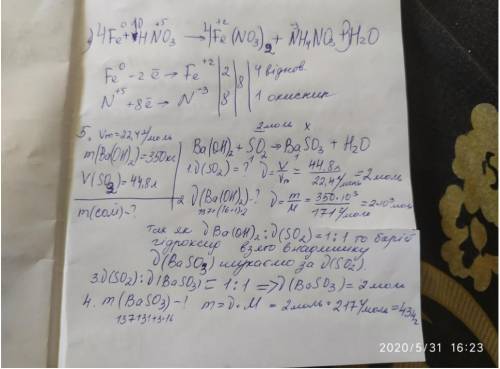 4Fe⁰ + 10HN⁺⁵O₃ → 4Fe⁺²(NO₃)₂ + NH₄NO₃ + 3H₂O
Fe⁰ -2ē → Fe⁺² | 2 | 8 | 4 віднов.
N⁺⁵ +8ē → N⁻³ | 8 | | 1 окисник
5. Vm=22,4л/моль
m(Ba(OH)₂)=350кг
V(SO₂)=44,8л
m(солі)-?
2моль x
Ba(OH)₂ + SO₂ → BaSO₃ + H₂O
1. ν(SO₂)=? ν=V/Vm = 44,8л/22,4л/моль = 2 моль
2. ν(Ba(OH)₂)-? ν=m/M = 350·10³/171г/моль = 2·10³моль
Так як ν Ba(OH)₂ : ν(SO₂) = 1:1 то барій
гідроксид взято в надлишку
ν(BaSO₃) шукаємо за ν(SO₂).
3. ν(SO₂) : ν(BaSO₃) = 1:1 => ν(BaSO₃) = 2 моль
4. m(BaSO₃)-? m=ν·M = 2моль·217г/моль = 434г
2020/5/31 16:23